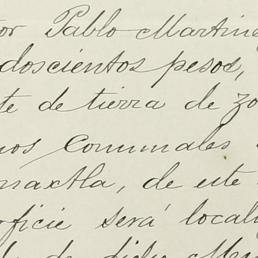 or Pablo Martine
doscientos pesos,
te de tierra de zo
nos comunales
maxtla, de este
rficie será locali